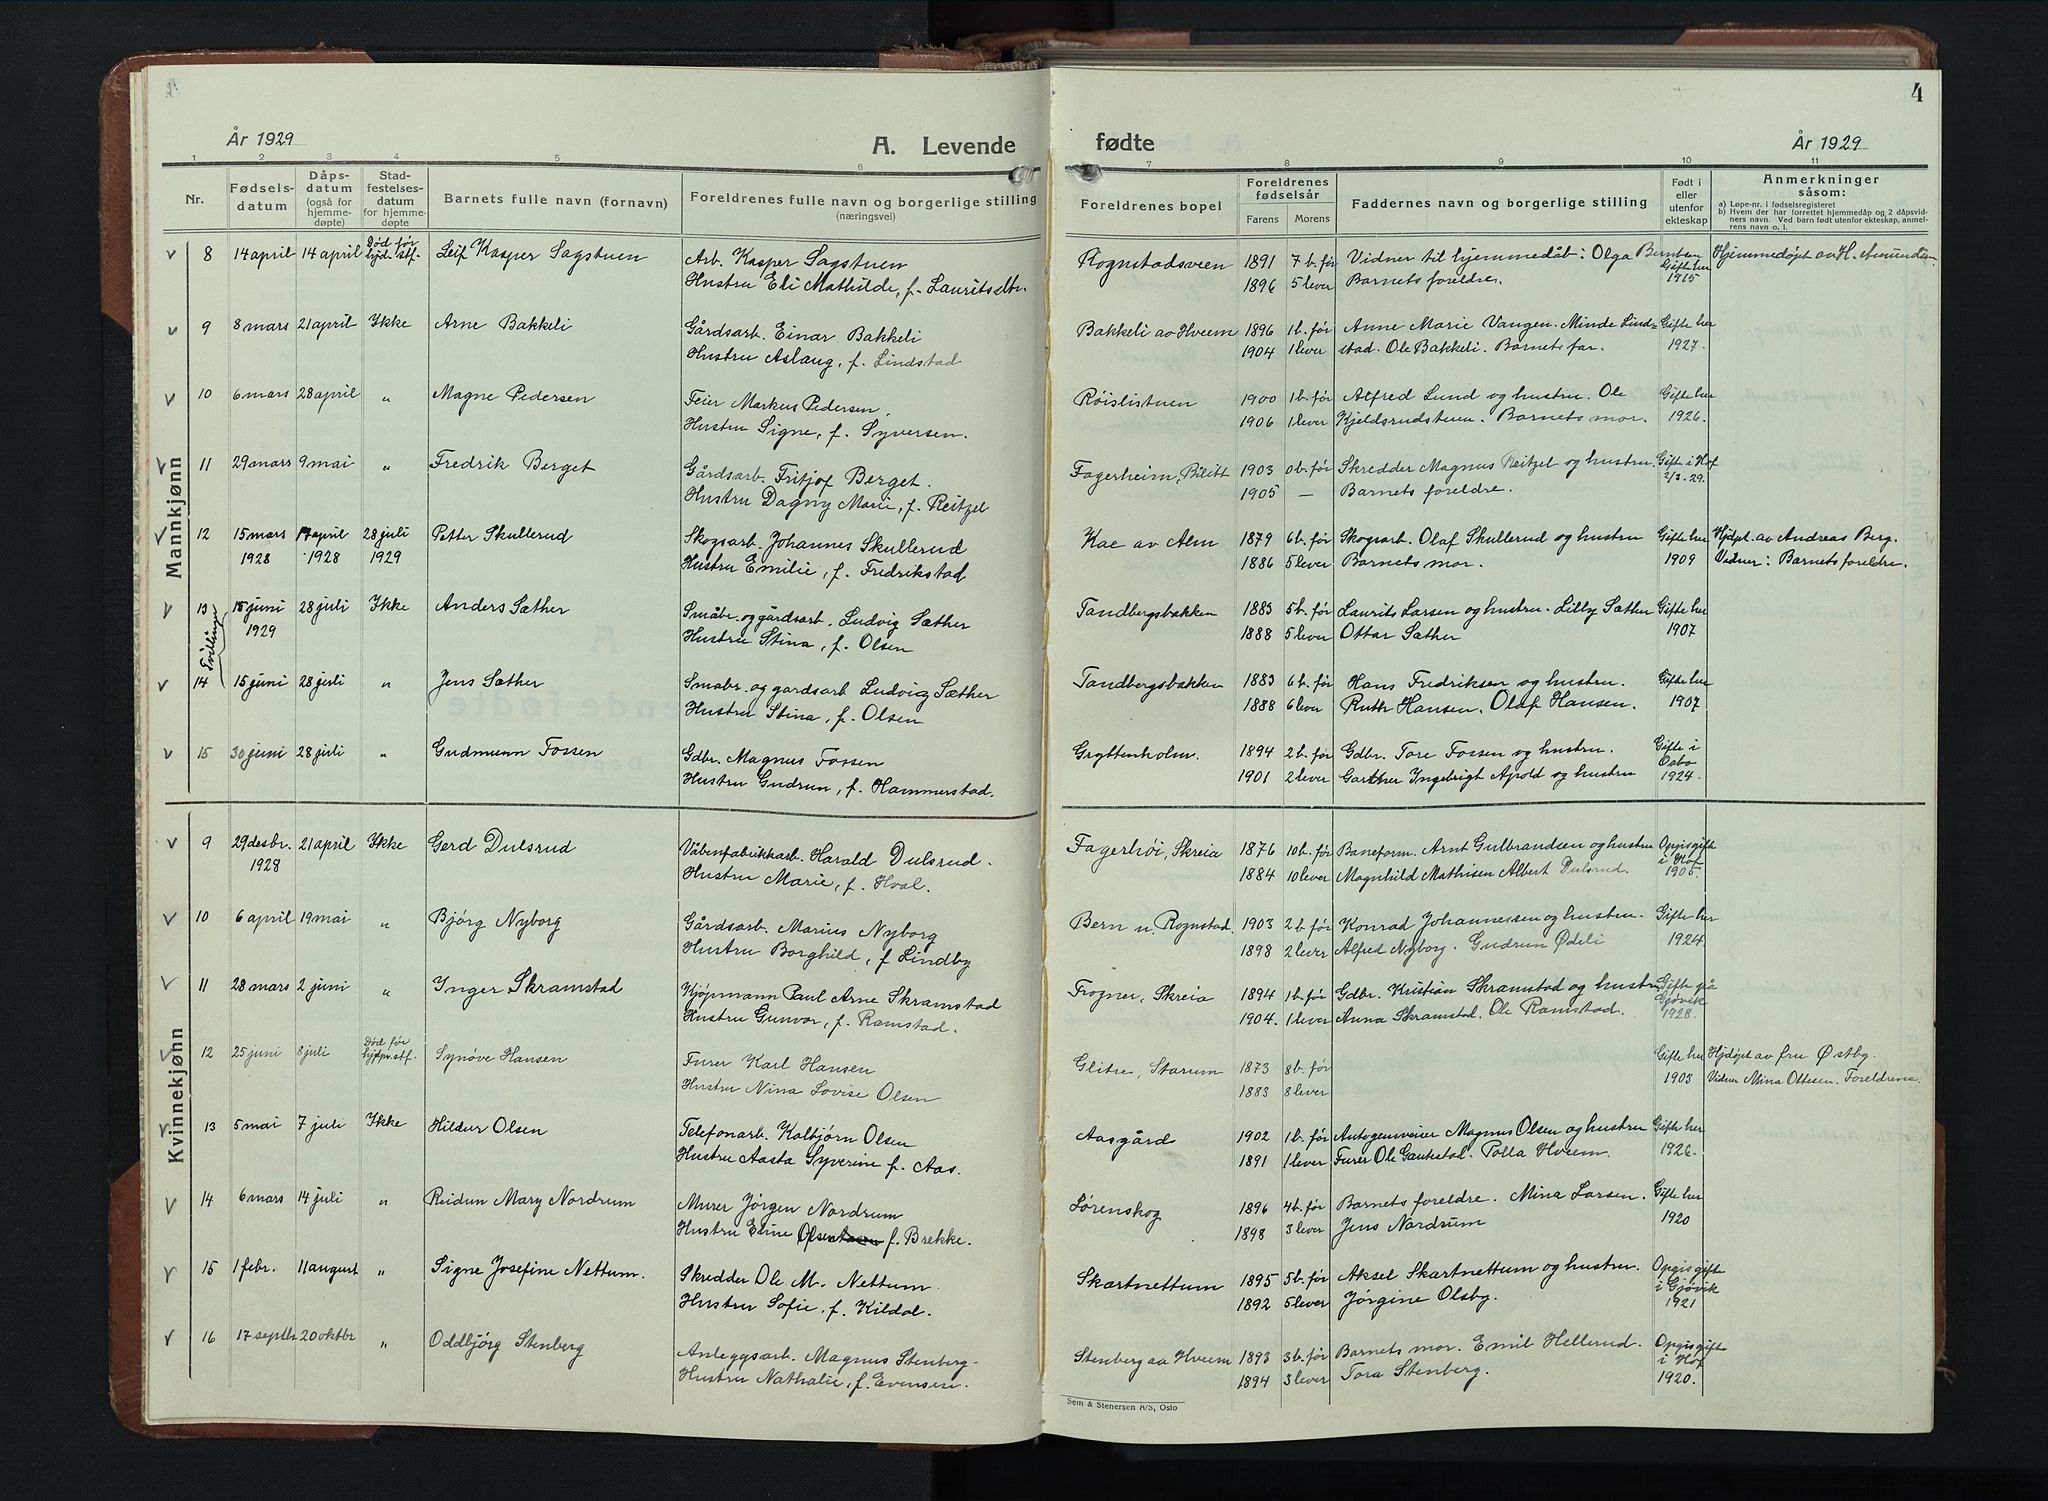 4
År 1929
A. Levende
fødte
År 1929
1 2 3 4 5 6 7 8 9 10 11
Nr.
Fødsels-
datum
Dåps-
datum
(også for
hjemme-
døpte)
Stad-
festelses-
datum
for hjemme-
døpte
Barnets fulle navn (fornavn)
Foreldrenes fulle navn og borgerlige stilling
(næringsvei)
Foreldrenes bopel
Foreldrenes
fødselsår
Farens Morens
Faddernes navn og borgerlige stilling
Født i
eller
utenfor
ekteskap
Anmerkninger
såsom:
a) Løpe-nr. i fødselsregisteret
b) Hvem der har forrettet hjemmedåp og 2 dåpsvid-
ners navn. Ved barn født utenfor ekteskap, anmel-
rens navn o. l.
Mannkjønn
8 14 april 14 april Død før hjd. stf. Leif Kasper Sagstuen Arb. Kasper Sagstuen Rognstadsveen 1891 7 b. før Vidner til hjemmedåb: Olga Berntsen Gifte her Hjemmedøpt av H. Amundsen
Hustru Eli Mathilde, f. Lauritsdtr. 1896 5 lever Barnets foreldre. 1915
9 8 mars 21 april Ikke Arne Bakkeli Gårdsarb. Einar Bakkeli Bakkeli av Hveem 1896 1 b. før Anne Marie Vangen. Minde Lind= Gifte her
Hustru Aslaug, f. Lindstad 1904 1 lever stad. Ole Bakkeli. Barnets far. 1927.
10 6 mars 28 april " Magne Pedersen Feier Markus Pedersen. Røislistuen 1900 1 b. før Alfred Lund og hustru. Ole Gifte her
Hustru Signe, f. Syversen. 1906 1 lever Kjeldsrudstuen. Barnets mor. 1926.
11 29 mars 9 mai " Fredrik Berget Gårdsarb. Fritjof Berget. Fagerheim, Bilitt 1903 0 b. før Skredder Magnus Reitzel og hustru. Gifte i Hof
Hustru Dagny Marie, f. Reitzel 1905 — Barnets foreldre. 2/3. 29.
12 15 mars april 28 juli Petter Skullerud Skogsarb. Johannes Skullerud Kae av Alm 1879 6 b. før Skogsarb. Olaf Skullerud og hustru Gifte her Hjdpt. av Andreas Berg.
1928 1928 1929 Hustru Emilie, f. Fredrikstad 1886 5 lever Barnets mor. 1909 Vidner: Barnets foreldre.
Tvillinger
13 15 juni 28 juli Ikke Anders Sæther Småbr. og gårdsarb. Ludvig Sæther Tandbergsbakken 1883 5 b. før Laurits Larsen og hustru. Lilly Sæther Gifte her
1929 Hustru Stina, f. Olsen 1888 5 lever Ottar Sæther 1907
14 15 juni 28 juli " Jens Sæther Småbr. og gårdsarb Ludvig Sæther Tandbergsbakken 1883 6 b. før Hans Fredriksen og hustru. Gifte her
Hustru Stina, f. Olsen 1888 6 lever Ruth Hansen. Olaf Hansen. 1907
15 30 juni 28 juli " Gudmunn Fossen Gdbr. Magnus Fossen Gryttenholm. 1894 2 b. før Gdbr. Tore Fossen og hustru. Gifte i Oslo
Hustru Gudrun, f. Hammerstad. 1901 2 lever Gartner Ingebrigt Apold og hustru 1924.
Kvinnekjønn
9 29 desbr. 21 april Ikke Gerd Dulsrud Våbenfabrikkarb. Harald Dulsrud. Fagerhøi, Skreia 1876 10 b. før Baneform. Arnt Gulbrandsen og hustru Opgis gifte
1928 Hustru Marie, f. Hval. 1884 10 lever Magnhild Mathisen Albert Dulsrud. i Hof 1905.
10 6 april 19 mai " Bjørg Nyborg Gårdsarb. Marius Nyborg Bern u. Rognstad. 1903 2 b. før Konrad Johannessen og hustru. Gifte her
Hustru Borghild, f Lindby 1898 2 lever Alfred Nyborg. Gudrun Ødeli 1924.
11 28 mars 2 juni " Inger Skramstad Kjøpmann Paul Arne Skramstad Frogner, Skreia 1894 1 b. før Gdbr. Kristian Skramstad og hustru Gifte på
Hustru Gunvor, f. Ramstad. 1904. 1 lever Anna Skramstad. Ole Ramstad. Gjøvik 1928.
12 25 juni 8 juli Død før stf. Synøve Hansen Furer Karl Hansen Glitre, Starum 1873 8 b. før Gifte her Hjdøpt av fru Østby.
Hustru Nina Lovise Olsen 1883 8 lever 1903 Vidner Mina Ottesen. Foreldrene
13 5 mai 7 juli Ikke Hildur Olsen Telefonarb. Kolbjørn Olsen Aasgård 1902 1 b. før Autogensveiser Magnus Olsen og hustru Gifte her
Hustru Aasta Syverine f. Aas. 1891 1 lever Furer Ole Gaukstad. Polla Hveem. 1926.
14 6 mars 14 juli " Reidun Mary Nordrum Murer Jørgen Nordrum Lørenskog 1896 4 b. før Barnets foreldre. Mina Larsen. Gifte her
Hustru Eline f. Brekke. 1898 3 lever Jens Nordrum 1920
15 1 febr. 11 august " Signe Josefine Nettum. Skredder Ole M. Nettum. Skartnettum 1895 5 b. før Aksel Skartnettum og hustru. Opgis gifte
Hustru Sofie, f. Kildal. 1892 5 lever Jørgine Olsby. i Gjøvik 1921
16 17 septbr 20 oktbr " Oddbjørg Stenberg Anleggsarb. Magnus Stenberg. Stenberg aa Hveem 1893 3 b. før Barnets mor. Emil Hellerud. Opgis gifte
Hustru Nathalie, f. Evensen. 1894 3 lever Tora Stenberg. i Hof 1920.
Sem & Stenersen A/S, Oslo